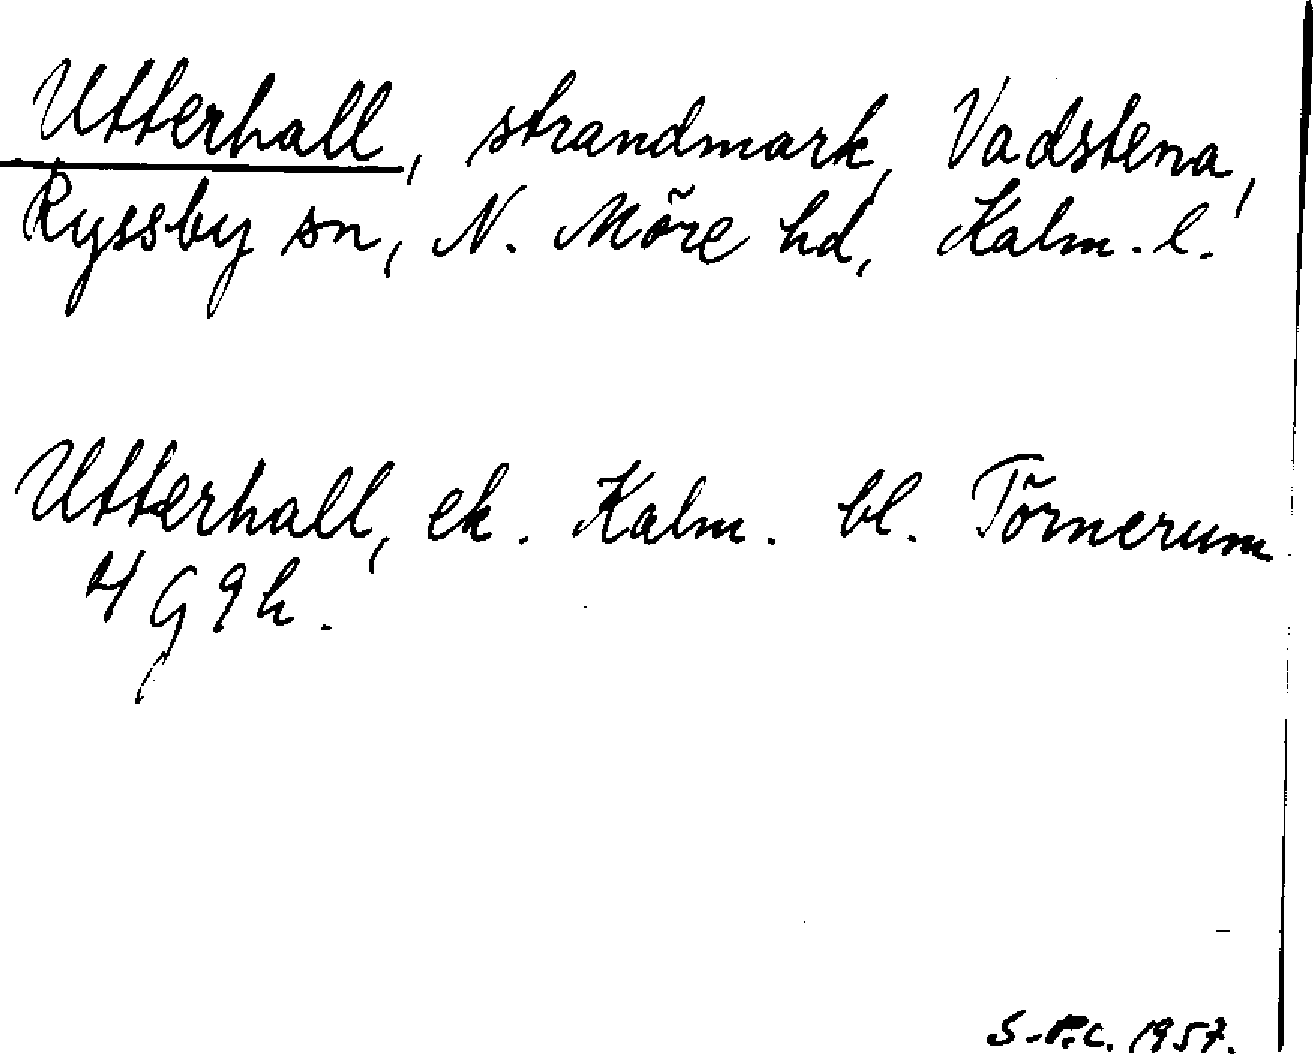 Utterhall, strandmark, Vadstena,
Ryssby sn, N. Möre hd, Kalm. l.
Utterhall, ek. Kalm. bl. Törnerum
4 G 9 h.
S-P.C. 1957.